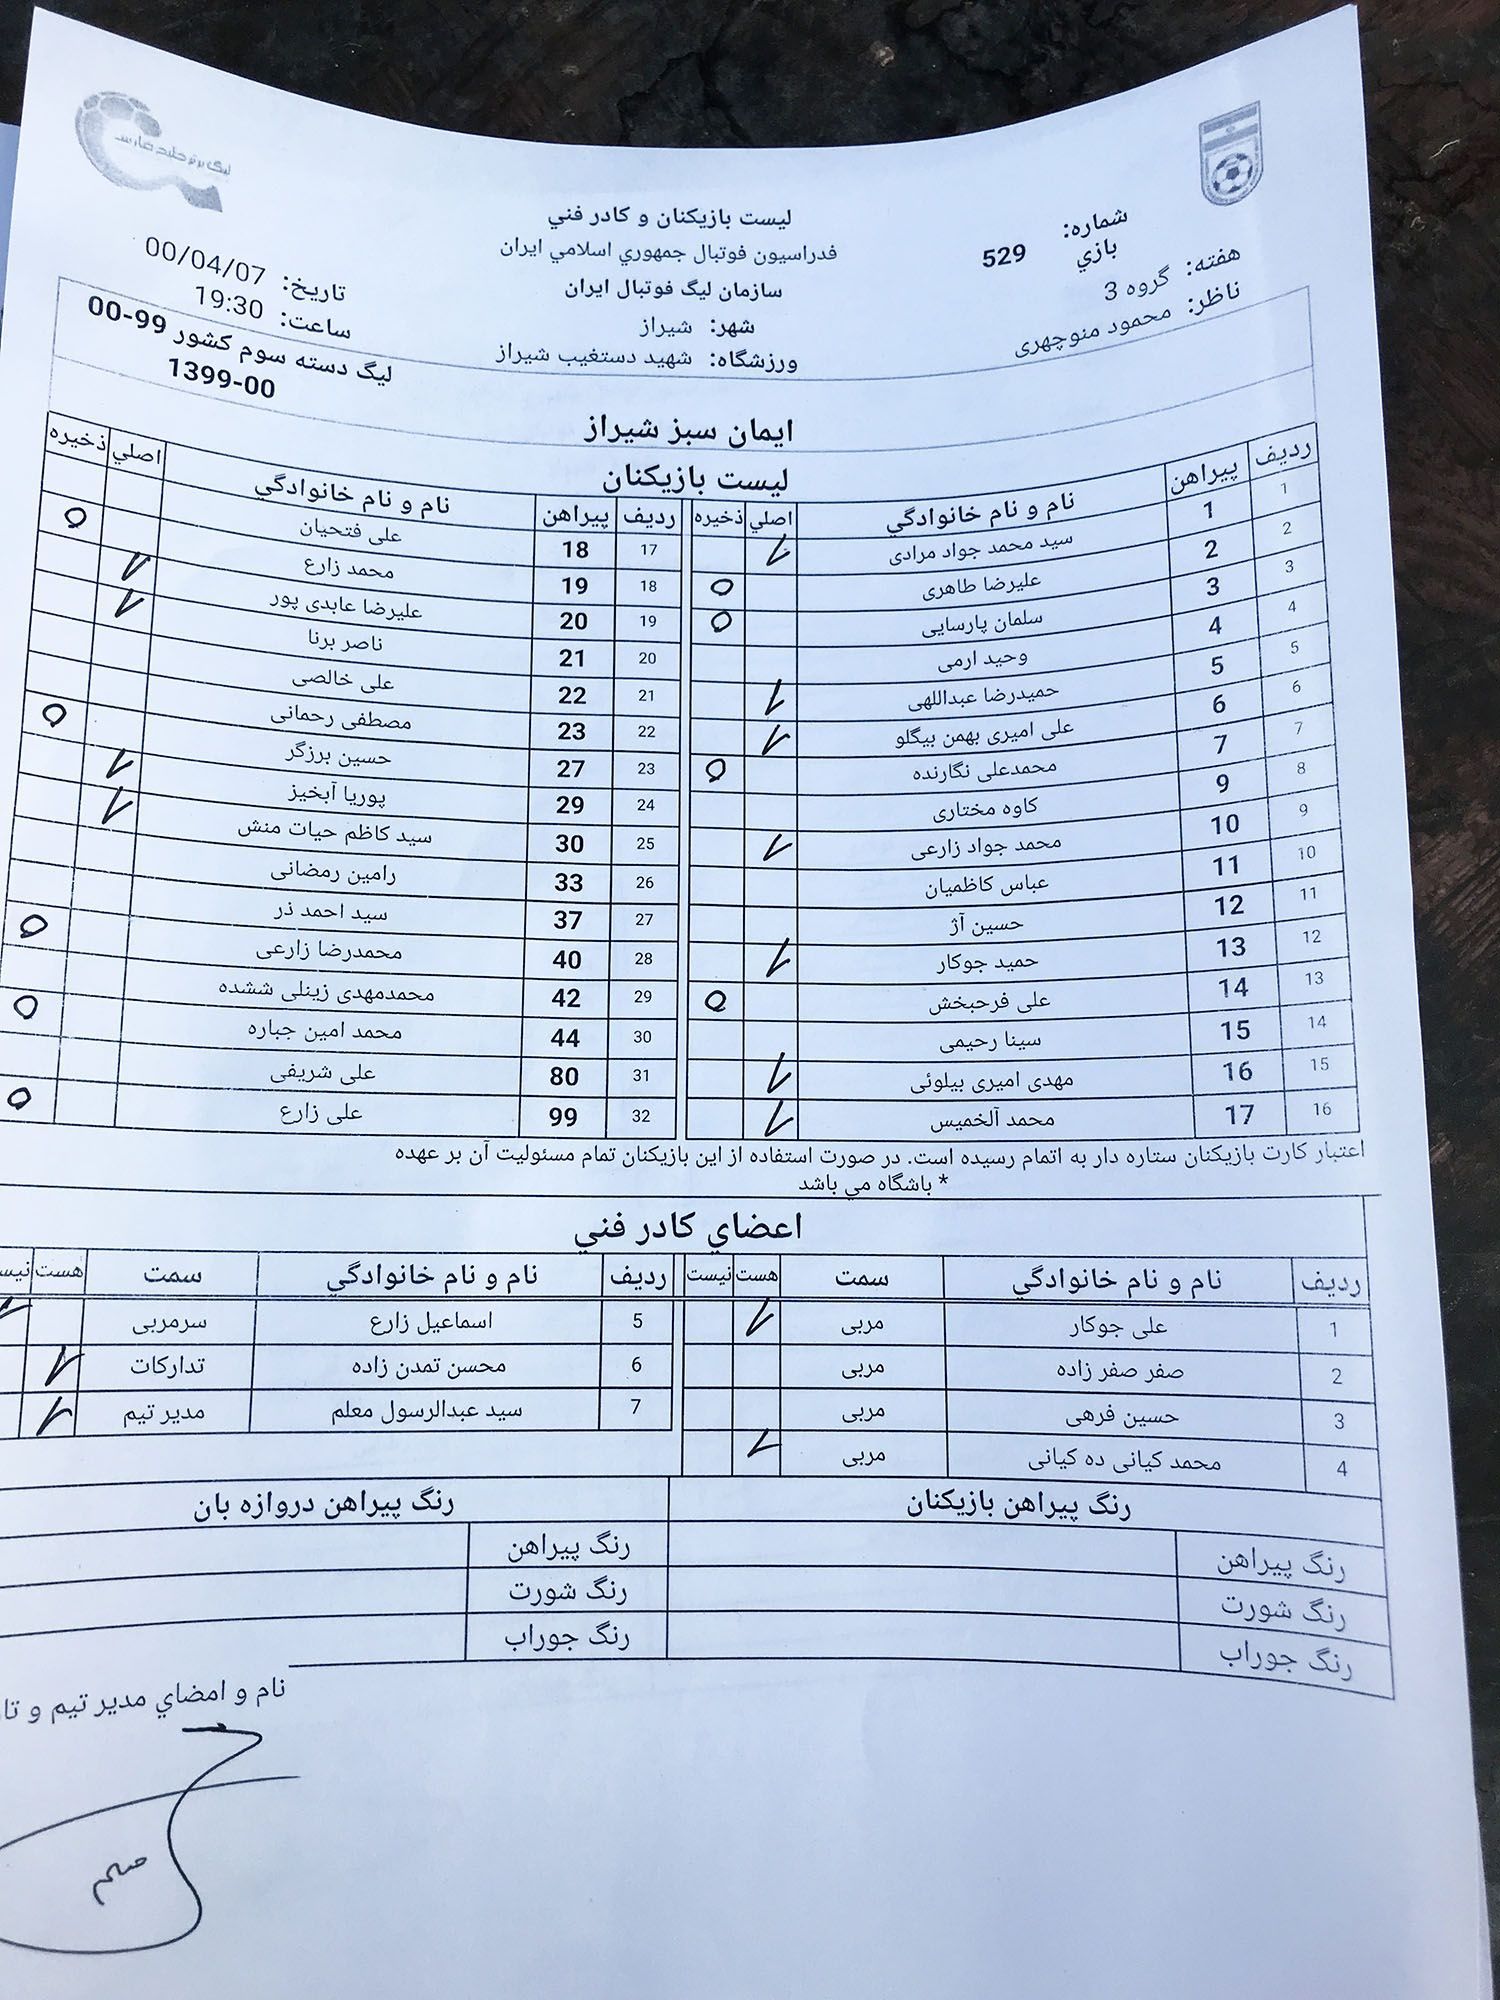 ليگ برتر خليج فارس
لیست بازیکنان و کادر فني
فدراسیون فوتبال جمهوري اسلامي ایران
سازمان لیگ فوتبال ایران
شهر: شیراز
ورزشگاه: شهید دستغیب شیراز
شماره بازي: 529
هفته: گروه 3
ناظر: محمود منوچهری
تاریخ: 00/04/07
ساعت: 19:30
لیگ دسته سوم کشور 99-00
1399-00
ایمان سبز شیراز
لیست بازیکنان
ردیف پیراهن نام و نام خانوادگي اصلي ذخیره
1 1 سید محمد جواد مرادی ✓
2 2 علیرضا طاهری O
3 3 سلمان پارسایی O
4 4 وحید ارمی
5 5 حمیدرضا عبداللهی ✓
6 6 علی امیری بهمن بیگلو ✓
7 7 محمدعلی نگارنده O
8 9 کاوه مختاری
9 10 محمد جواد زارعی ✓
10 11 عباس کاظمیان
11 12 حسین آژ
12 13 حمید جوکار ✓
13 14 علی فرحبخش O
14 15 سینا رحیمی
15 16 مهدی امیری بیلوئی ✓
16 17 محمد آلخمیس ✓
ردیف پیراهن نام و نام خانوادگي اصلي ذخیره
17 18 علی فتحیان O
18 19 محمد زارع ✓
19 20 علیرضا عابدی پور ✓
20 21 ناصر برنا
21 22 علی خالصی
22 23 مصطفی رحمانی O
23 27 حسین برزگر ✓
24 29 پوریا آبخیز ✓
25 30 سید کاظم حیات منش
26 33 رامین رمضانی
27 37 سید احمد ذر
28 40 محمدرضا زارعی O
29 42 محمدمهدی زینلی ششده
30 44 محمد امین جباره O
31 80 علی شریفی
32 99 علی زارع O
اعتبار کارت بازیکنان ستاره دار به اتمام رسیده است. در صورت استفاده از این بازیکنان تمام مسئولیت آن بر عهده
* باشگاه مي باشد
اعضاي کادر فني
ردیف نام و نام خانوادگي سمت هست نیست
1 علی جوکار مربی ✓
2 صفر صفر زاده مربی
3 حسین فرهی مربی
4 محمد کیانی ده کیانی مربی ✓
ردیف نام و نام خانوادگي سمت هست
5 اسماعیل زارع سرمربی ✓
6 محسن تمدن زاده تدارکات ✓
7 سید عبدالرسول معلم مدیر تیم ✓
رنگ پیراهن بازیکنان
رنگ پیراهن
رنگ شورت
رنگ جوراب
رنگ پیراهن دروازه بان
رنگ پیراهن
رنگ شورت
رنگ جوراب
نام و امضاي مدیر تیم و
معلم